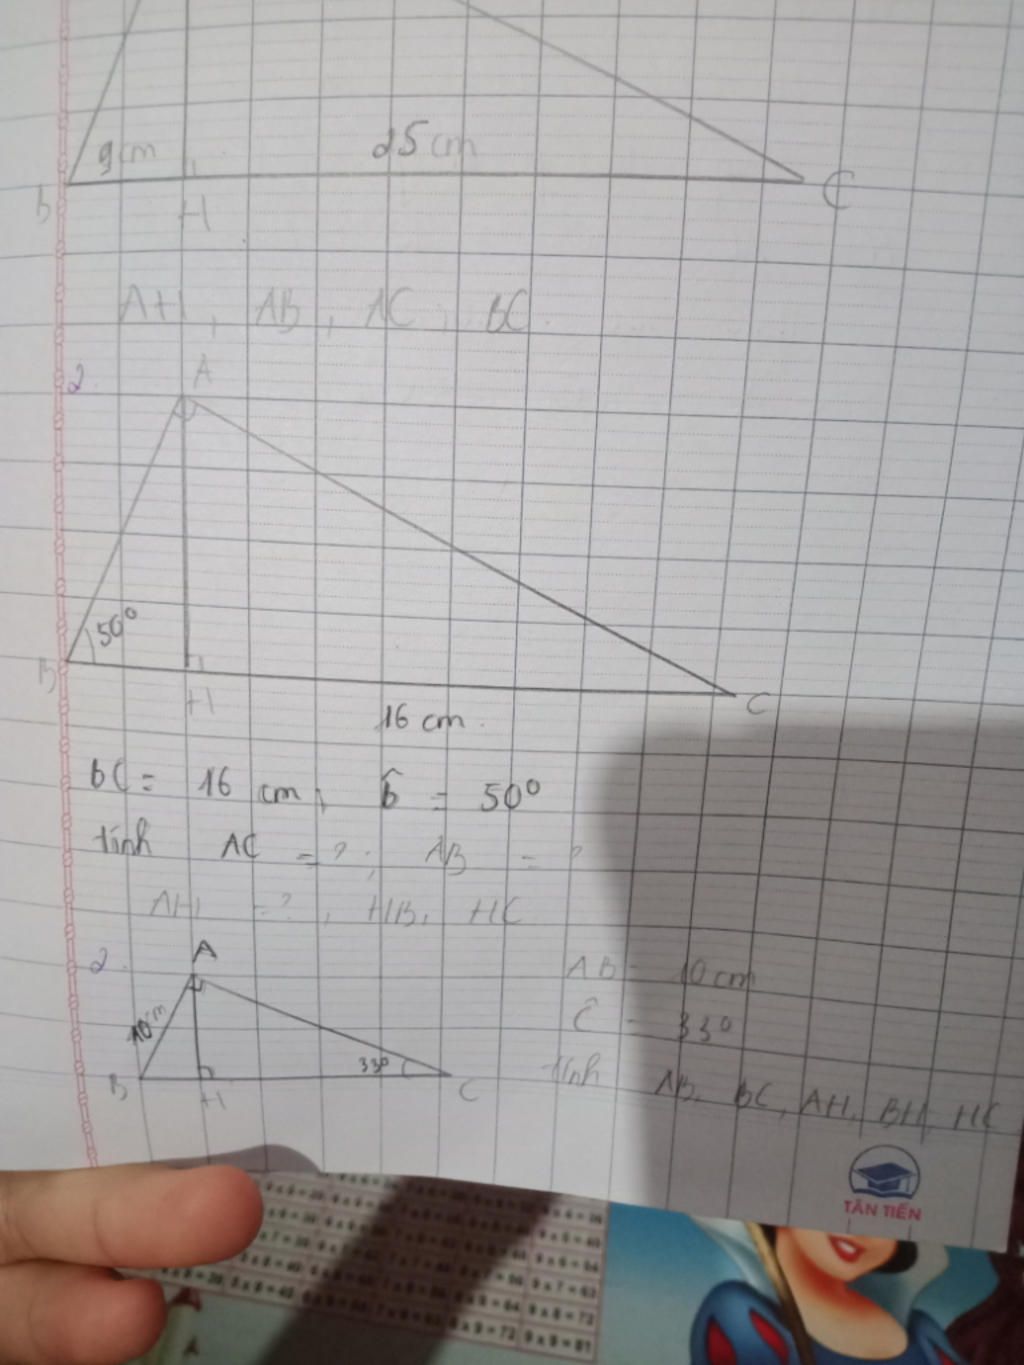 9cm 25 cm
B H C
AH, AB, AC, BC.
2. A
50°
B H C
16 cm.
bC = 16 cm, b̂ = 50°
tính AC = ? ; AB = ?
AH = ?, HB, HC
2. A
10cm
33°
B H C
AB = 10 cm
Ĉ = 33°
tính AB, BC, AH, BH, HC
TÂN TIẾN
A